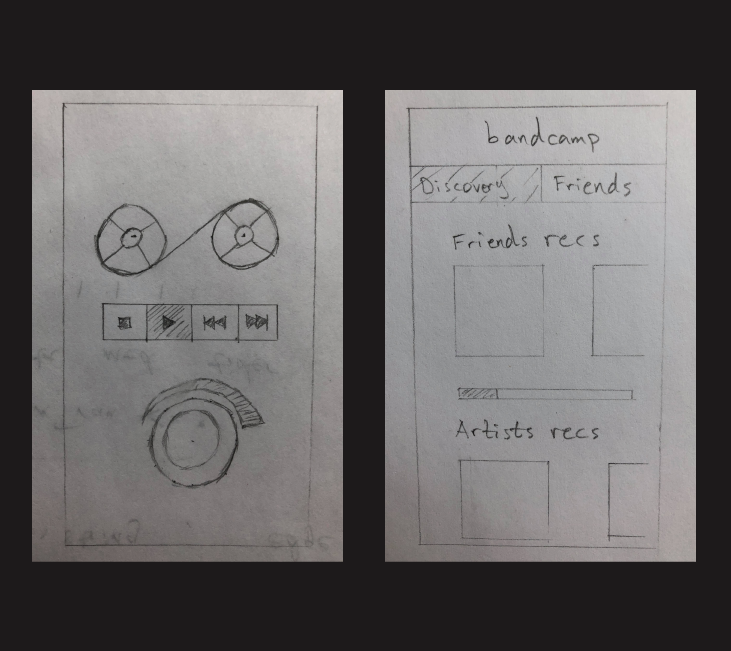 bandcamp
Discovery Friends
Friends recs
Artists recs